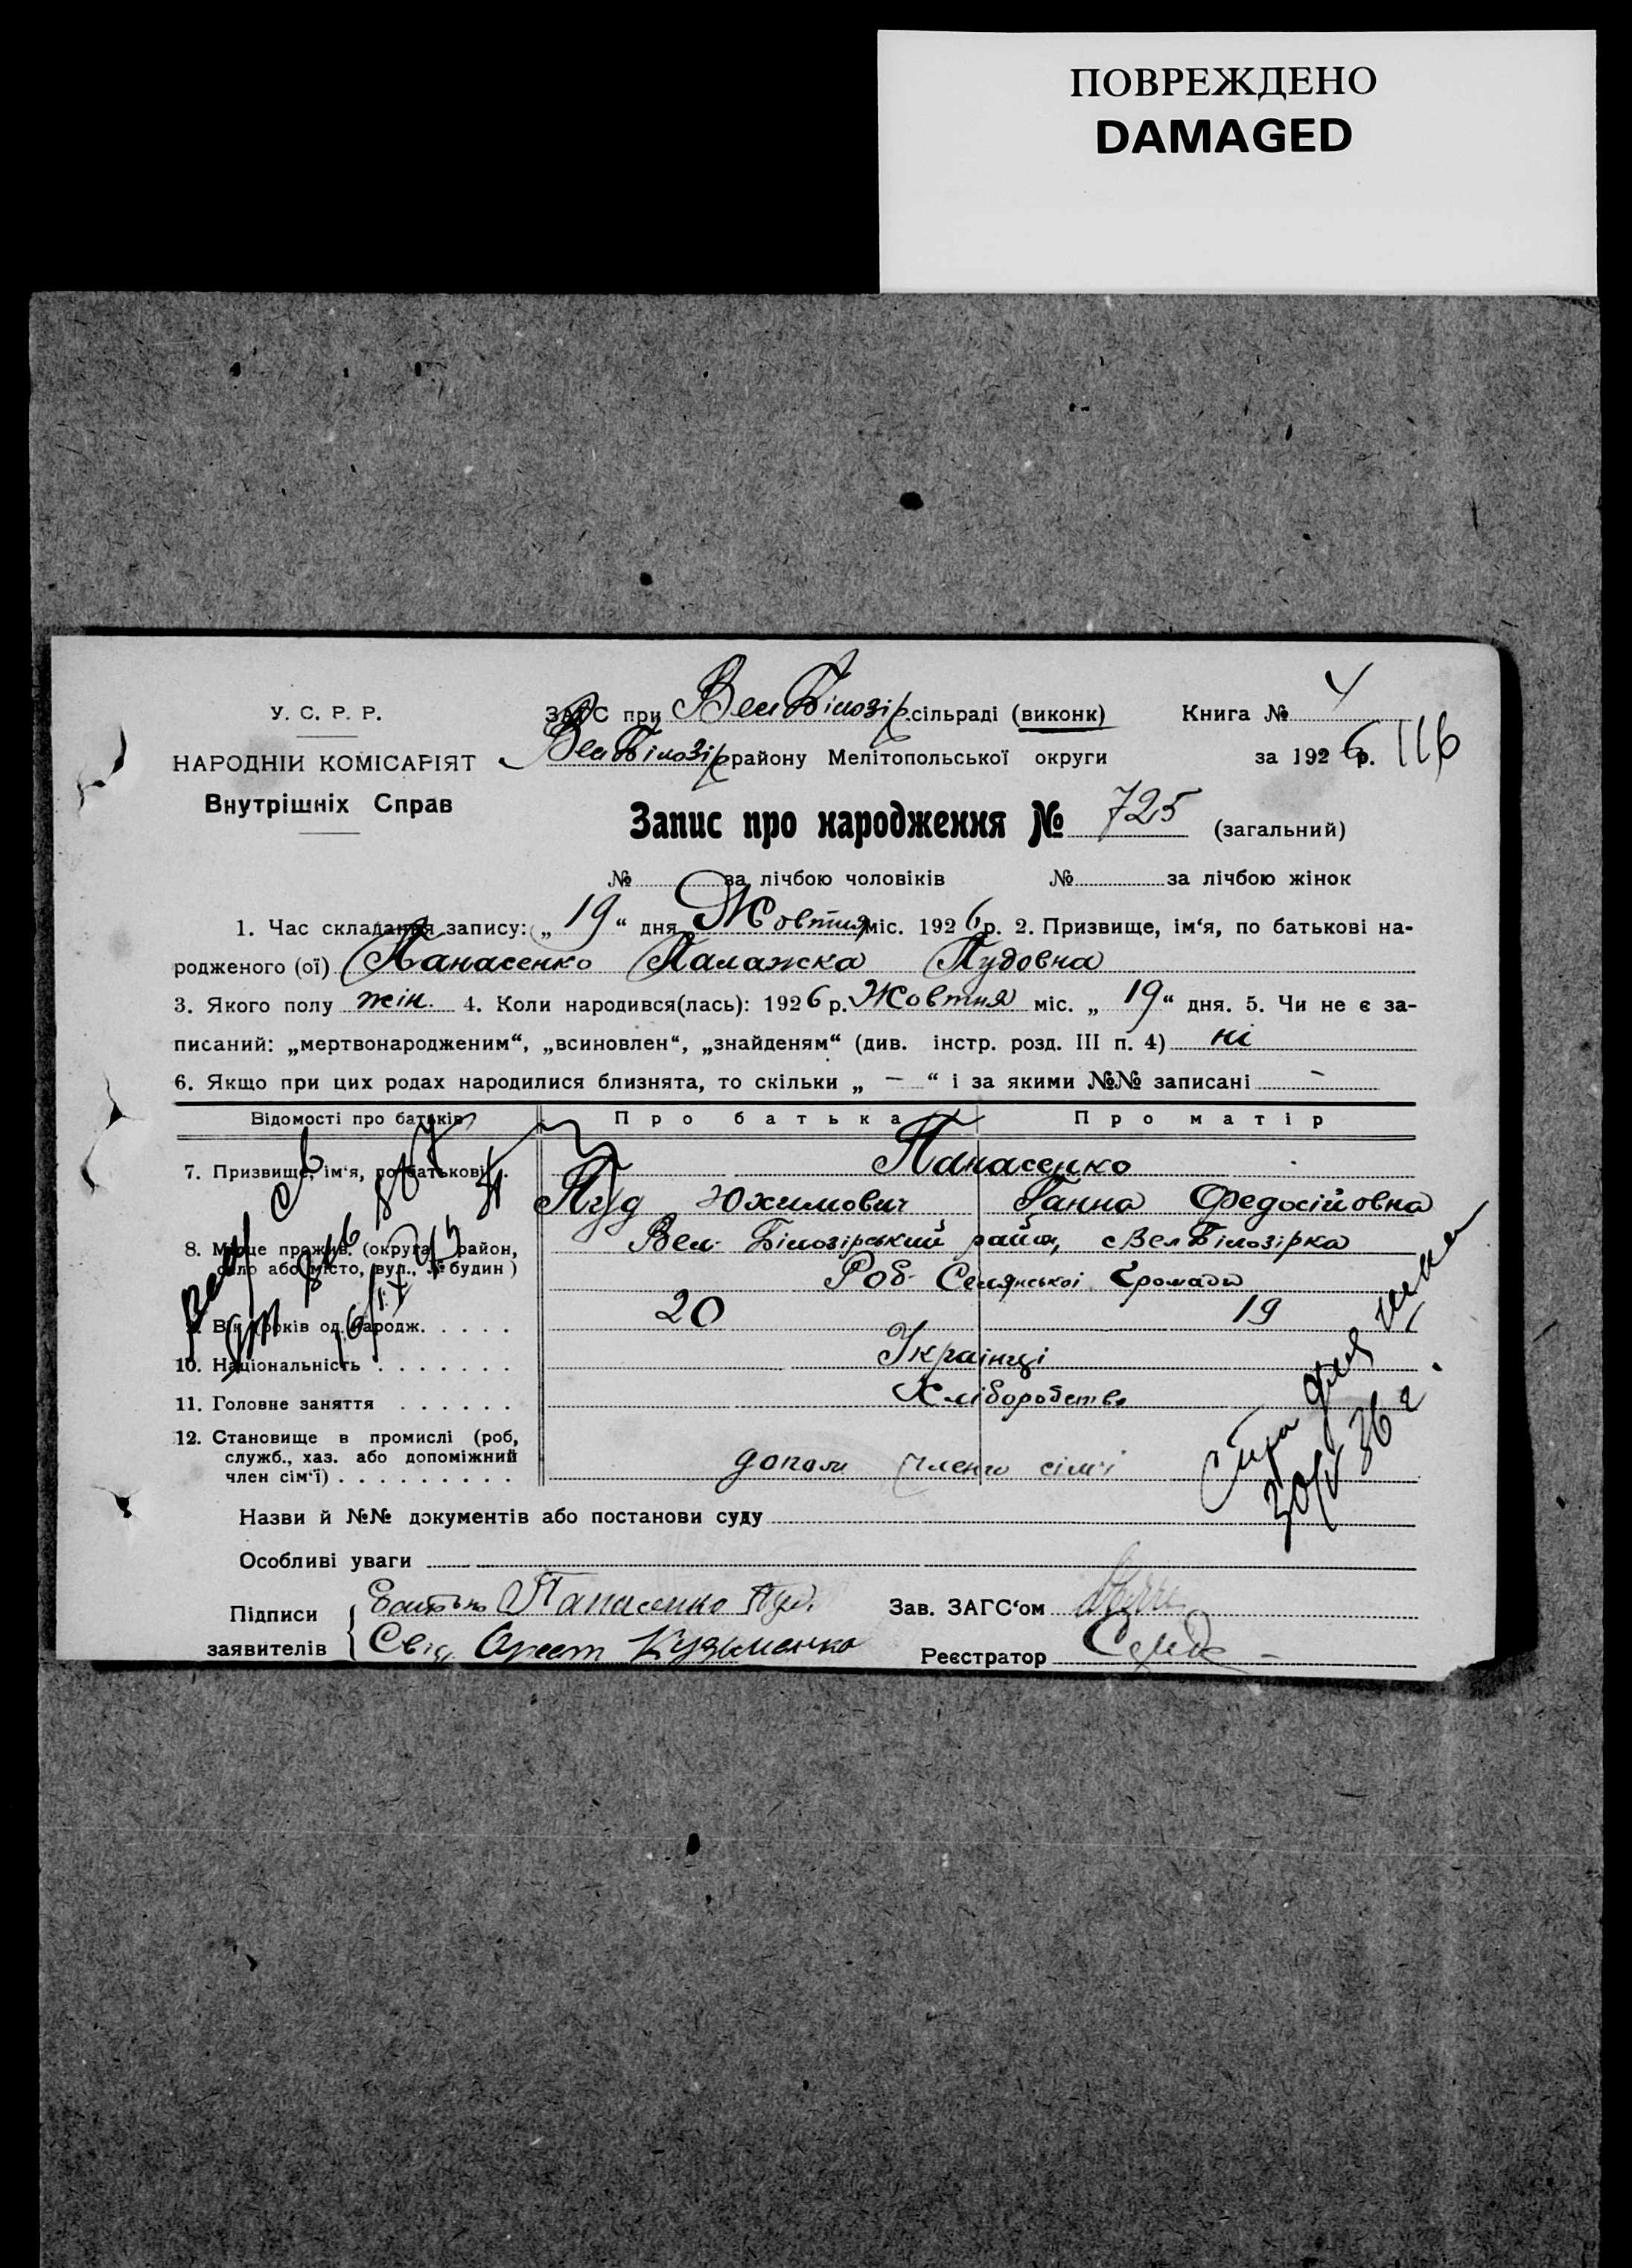 ПОВРЕЖДЕНО
DAMAGED
У. С. Р. Р.
НАРОДНІЙ КОМІСАРІЯТ
Внутрішніх Справ
ЗАГС при Вел Білозір. сільраді (виконк)
Вел Білозір району Мелітопольської округи
Книга № 4
за 1926 р. 116
Запис про народження № 725 (загальний)
№ за лічбою чоловіків № за лічбою жінок
1. Час складання запису: „ 19 “ дня Жовтня міс. 1926 р. 2. Призвище, ім‘я, по батькові на-
родженого (ої) Панасенко Палажка Пудовна
3. Якого полу жін. 4. Коли народився(лась): 1926 р. Жовтня міс. „ 19 “ дня. 5. Чи не є за-
писаний: „мертвонародженим“, „всиновлен“, „знайденям“ (див. інстр. розд. III п. 4) ні
6. Якщо при цих родах народилися близнята, то скільки „ — “ і за якими №№ записані —
Відомості про батьків Про батька Про матір
7. Призвище, ім‘я, по батькові . Панасенко
Пуд Юхимович Ганна Федосійовна
8. Місце прожив. (округа, район, Вел. Білозірський район, с Вел Білозірка
село або місто, вул., № будин) Роб. Селянської Громади
9. Вік років од народж. . . . . 20 19
10. Національність . . . . . . . Українці
11. Головне заняття . . . . . . Хліборобство
12. Становище в промислі (роб,
служб., хаз. або допоміжний
член сім‘ї) . . . . . . . . . допом члени сім'ї
30/V 36 г.
Назви й №№ документів або постанови суду
Особливі уваги
Підписи
заявителів
Батько Панасенко Пуд.
Свід. Орест Кузьменко
Зав. ЗАГС‘ом
Реєстратор